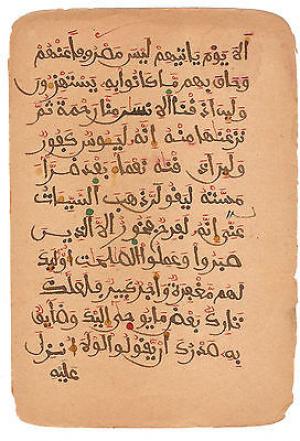 ألا يوم ياتيهم ليس مصروفا عنهم
وحاق بهم ما كانوا به يستهزءون
ولين اذقنا الانسن منا رحمة ثم
نزعنها منه انه ليوس كفور
ولين اذقنه نعماء بعد ضراء
مسته ليقولن ذهب السيئات
عني انه لفرح فخور الا الذين
صبروا وعملوا الصلحت اوليك
لهم مغفرة واجر كبير فلعلك
تارك بعض ما يوحى اليك وضايق
به صدرك ان يقولوا لولا انزل
عليه